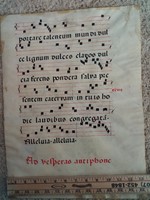 portare talentum mundi dul
ce lignum dulces clavos dul
cia ferens pondera salva pre
sentem catervam in tuo ho
die laudibus congregata
Alleluia alleluia
Ad vesperas antiphone